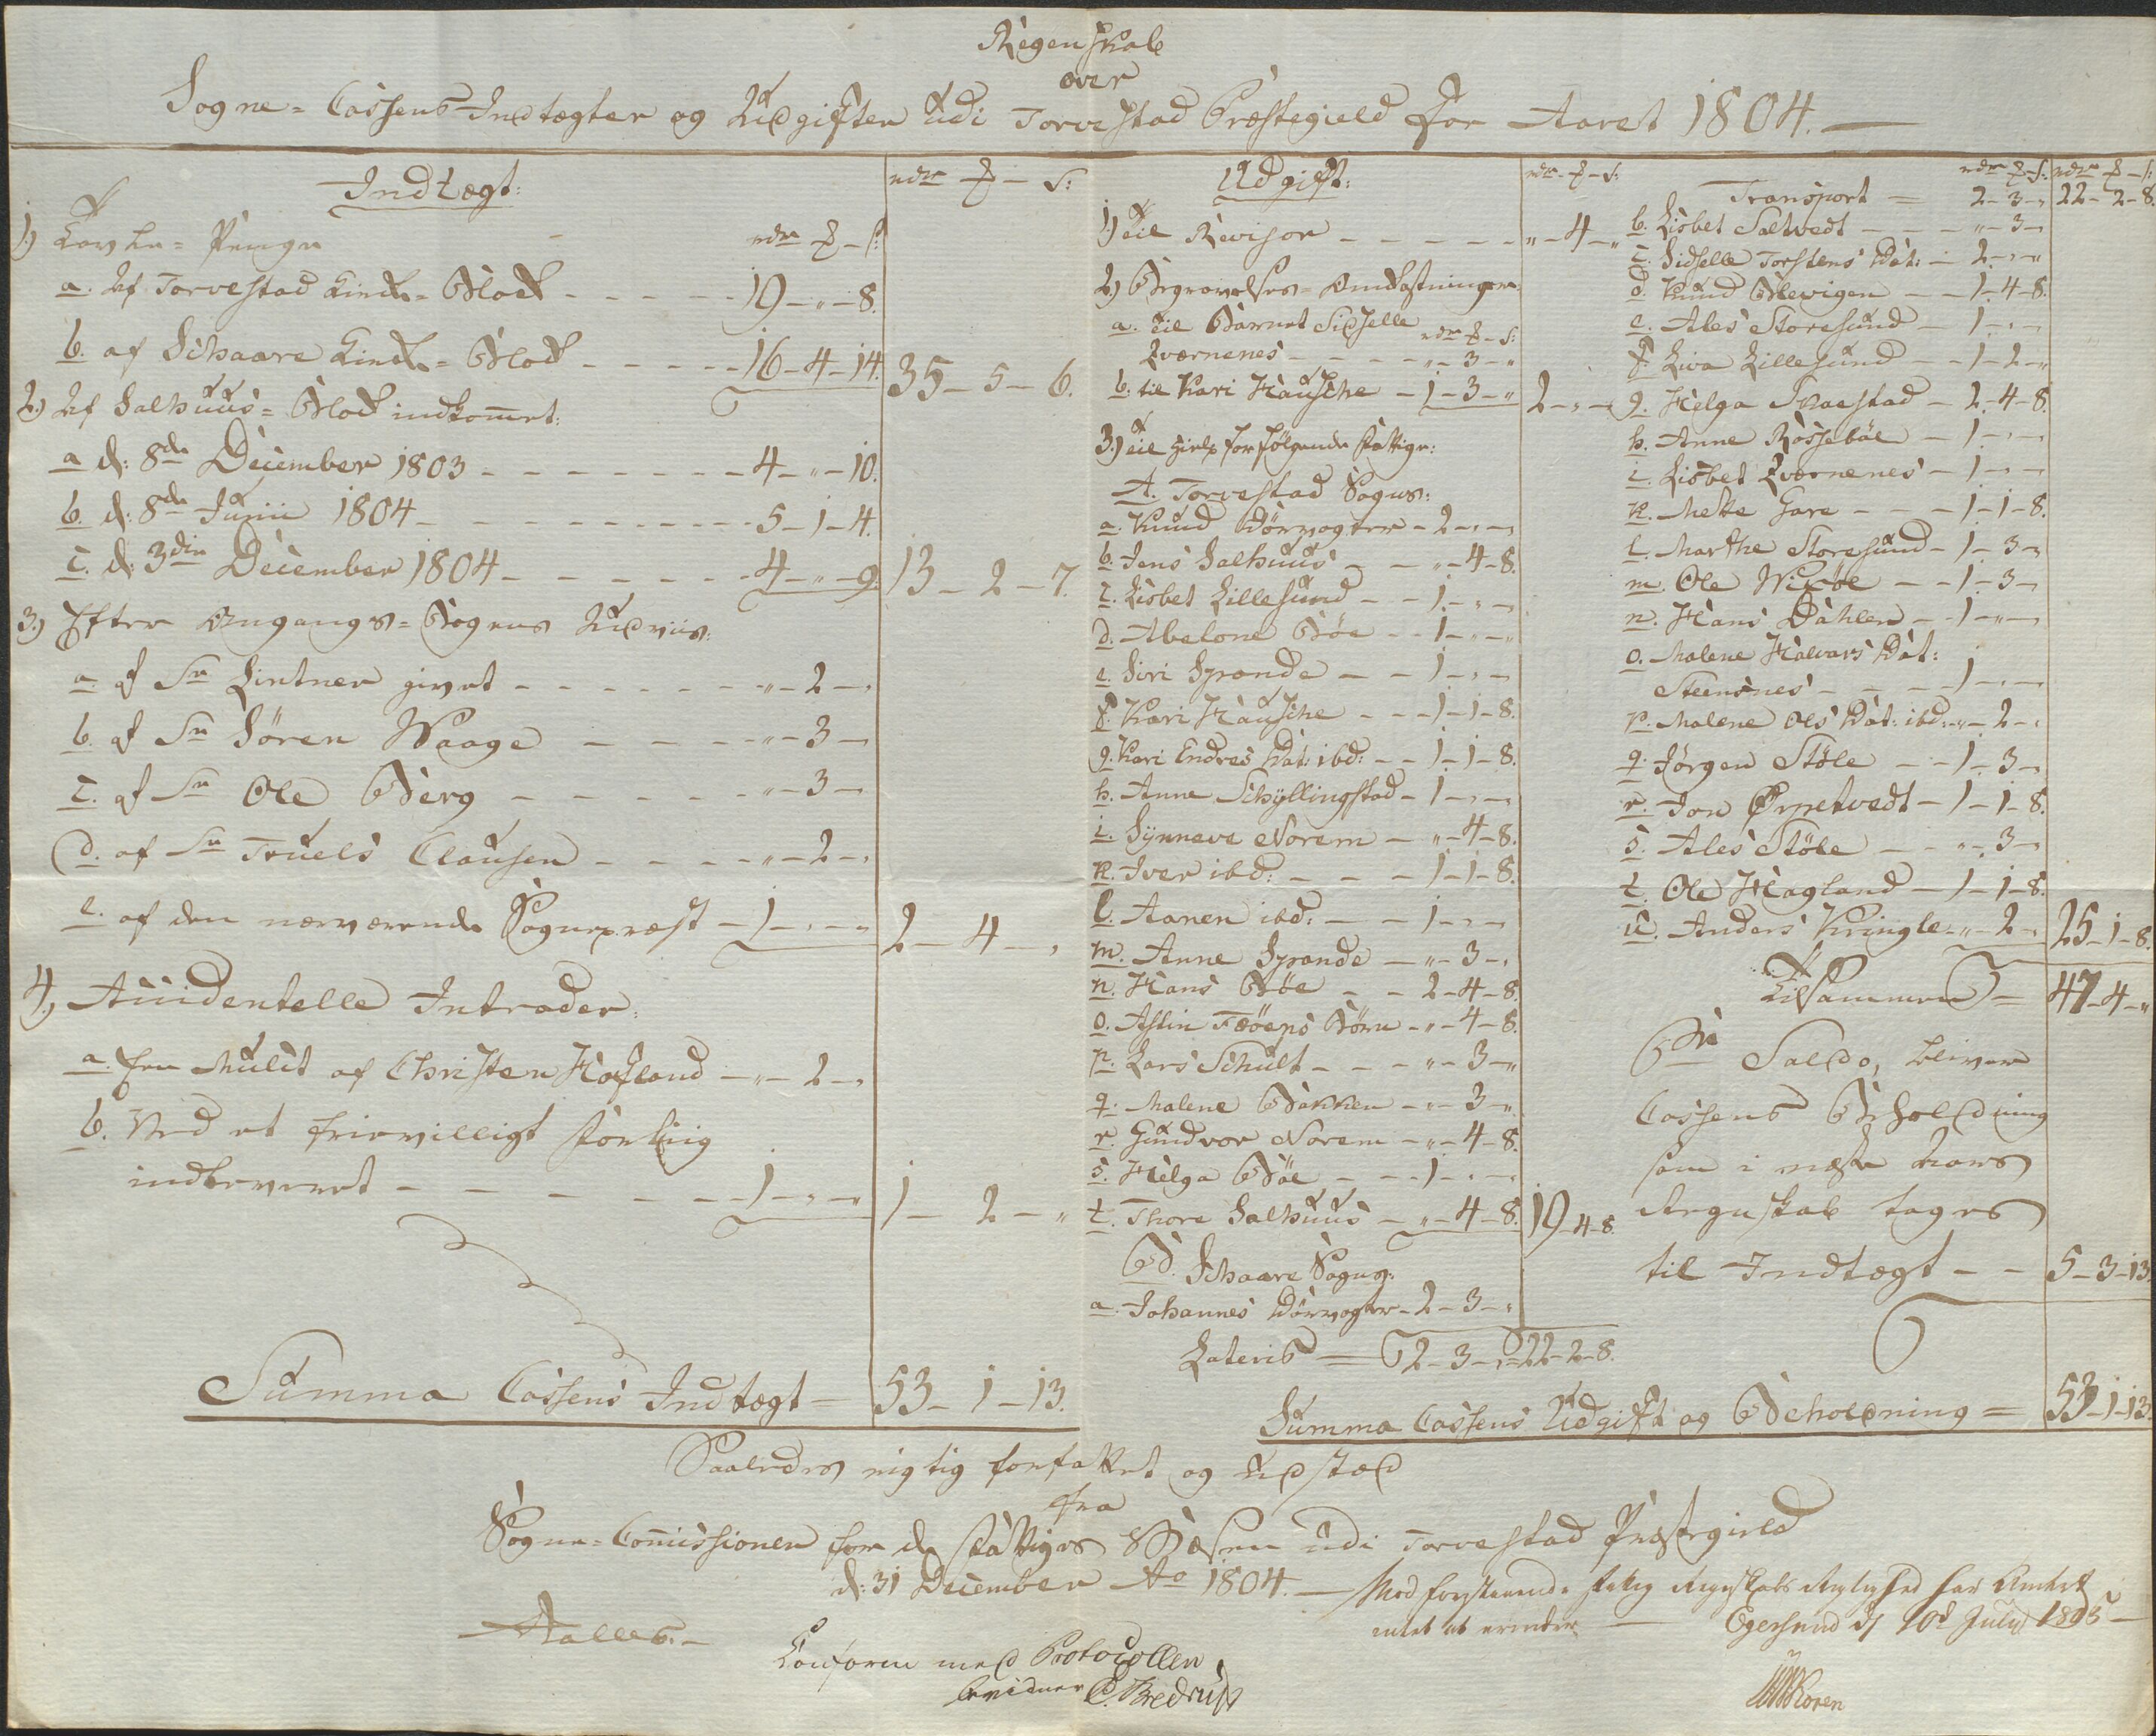 Regenskab
over
Sogne-Cassens Indtægter og Udgifter udi Torvestad Præstegield for Aaret 1804.
Indtægt:
rdr ƒ - s:
1) Tavle-Penge rdr ƒ - s:
a. Af Torvestad Kirke-Blok - - - - 19 - " - 8.
b. af Schaare Kirke-Blok - - - - 16 - 4 - 14. 35 - 5 - 6.
2.) Af Salhuus-Blok indkommet:
a d: 8de December 1803 - - - - 4 - " - 10.
b. d: 8de Junii 1804 - - - - 5 - 1 - 4.
c. d: 3die December 1804 - - - - 4 - " - 9. 13 - 2 - 7.
3) Efter Omgangs-Bogens Udviis:
a. af Sr Lintner givet - - - - " - 2 - "
b. af Sr Sören Waage - - - - " - 3 - "
c. af Sr Ole Berg - - - - " - 3 - "
d. af Sr Truels Clausen - - - - " - 2 - "
e. af den nærværende Sognepræst - 1 - " - " 2 - 4 - "
4) Accidentelle Intrader:
a. En Mulct af Christen Hafland - " - 2 - "
b. Ved et frievilligt Forliig
indleveret - - - - 1 - " - " 1 - 2 - "
Summa Cassens Indtægt - 53 - 1 - 13.
Udgift:
rdr - ƒ - s:
1) Til Revisor - - - - " - 4 - "
2) Begravelses-Omkostninger
a. Til Barnet Sidselle rdr ƒ - s:
Qværnenes - - - " - 3 - "
b. til Kari Hausche - 1 - 3 - " 2 - " - "
3) Til Hielp for følgende Fattige:
A. Torvestad Sogn:
a. Knud Dörvogter - 2 - " - "
b. Jens Salhuus - - " - 4 - 8.
c. Lisbet Lillesund - - 1 - " - "
d. Abelone Böe - - 1 - " - "
e. Siri Spande - - 1 - " - "
f. Kari Hausche - - - 1 - 1 - 8.
g. Kari Endres Dat: ibd: - - 1 - 1 - 8.
h. Anne Schyllingstad - 1 - " - "
i. Synneve Norem - " - 4 - 8.
k. Iver ibd: - - - 1 - 1 - 8.
l. Aanen ibd: - - 1 - " - "
m. Anne Spande - " - 3 - "
n. Hans Böe - - 2 - 4 - 8.
o. Astin Fæöens Börn - " - 4 - 8.
p. Lars Schult - - - " - 3 - "
q. Malene Bakken - " - 3 - "
r. Gundvor Norem - " - 4 - 8.
s. Helga Böe - - 1 - " - "
t. Thore Salhuus - " - 4 - 8. 19 - 4 - 8.
B. Schaare Sogn:
a. Johannes Dörvogter - 2 - 3 - "
Lateris = 2 - 3 - " = 22 - 2 - 8.
rdr ƒ - s: rdr ƒ - s:
Transport = 2 - 3 - " 22 - 2 - 8.
b. Lisbet Saltvedt - - - " - 3 - "
c. Sidselle Torstens Dat: - 2 - " - "
d. Knud Blevigen - - 1 - 4 - 8.
e. Ales Storesund - 1 - " - "
f. Liva Lillesund - - 1 - 2 - "
g. Helga Skaestad - 2 - 4 - 8.
h. Anne Rosseböe - 1 - " - "
i. Lisbet Qværnenes - 1 - " - "
k. Mette Gare - - - 1 - 1 - 8.
l. Marthe Storesund - 1 - 3 - "
m. Ole Wixöe - - 1 - 3 - "
n. Hans Dahlen - - 1 - " - "
o. Malene Halvars Dat:
Steensnes - - - - 1 - " - "
p. Malene Ols Dat: ibd: - " - 2 - "
q. Jörgen Stöle - - 1 - 3 - "
r. Jon Ørpetvedt - 1 - 1 - 8.
s. Ales Stöle - - " - 3 - "
t. Ole Hagland - 1 - 1 - 8.
u. Anders Kringle - " - 2 - " 25 - 1 - 8.
Tilsammen = 47 - 4 - "
Pr Saldo, bliver
Cassens Beholdning
som i næste Aars
Regnskab tages
til Indtægt - - 5 - 3 - 13
Summa Cassens Udgift og Beholdning = 53 - 1 - 13
Saaledes rigtig forfattet og udstæd
fra
Sogne-Commissionen for de Fattiges Væsen udi Torvestad Præstegield
d: 31 December Ao 1804. -
Aalles.
Conform med Protocollen
bevidner C. Bredrup
Mod forestaaende Fattig Regnskabs Rigtighed har Amtet
intet at erindre - Egersund d 10d July 1805 -
Koren